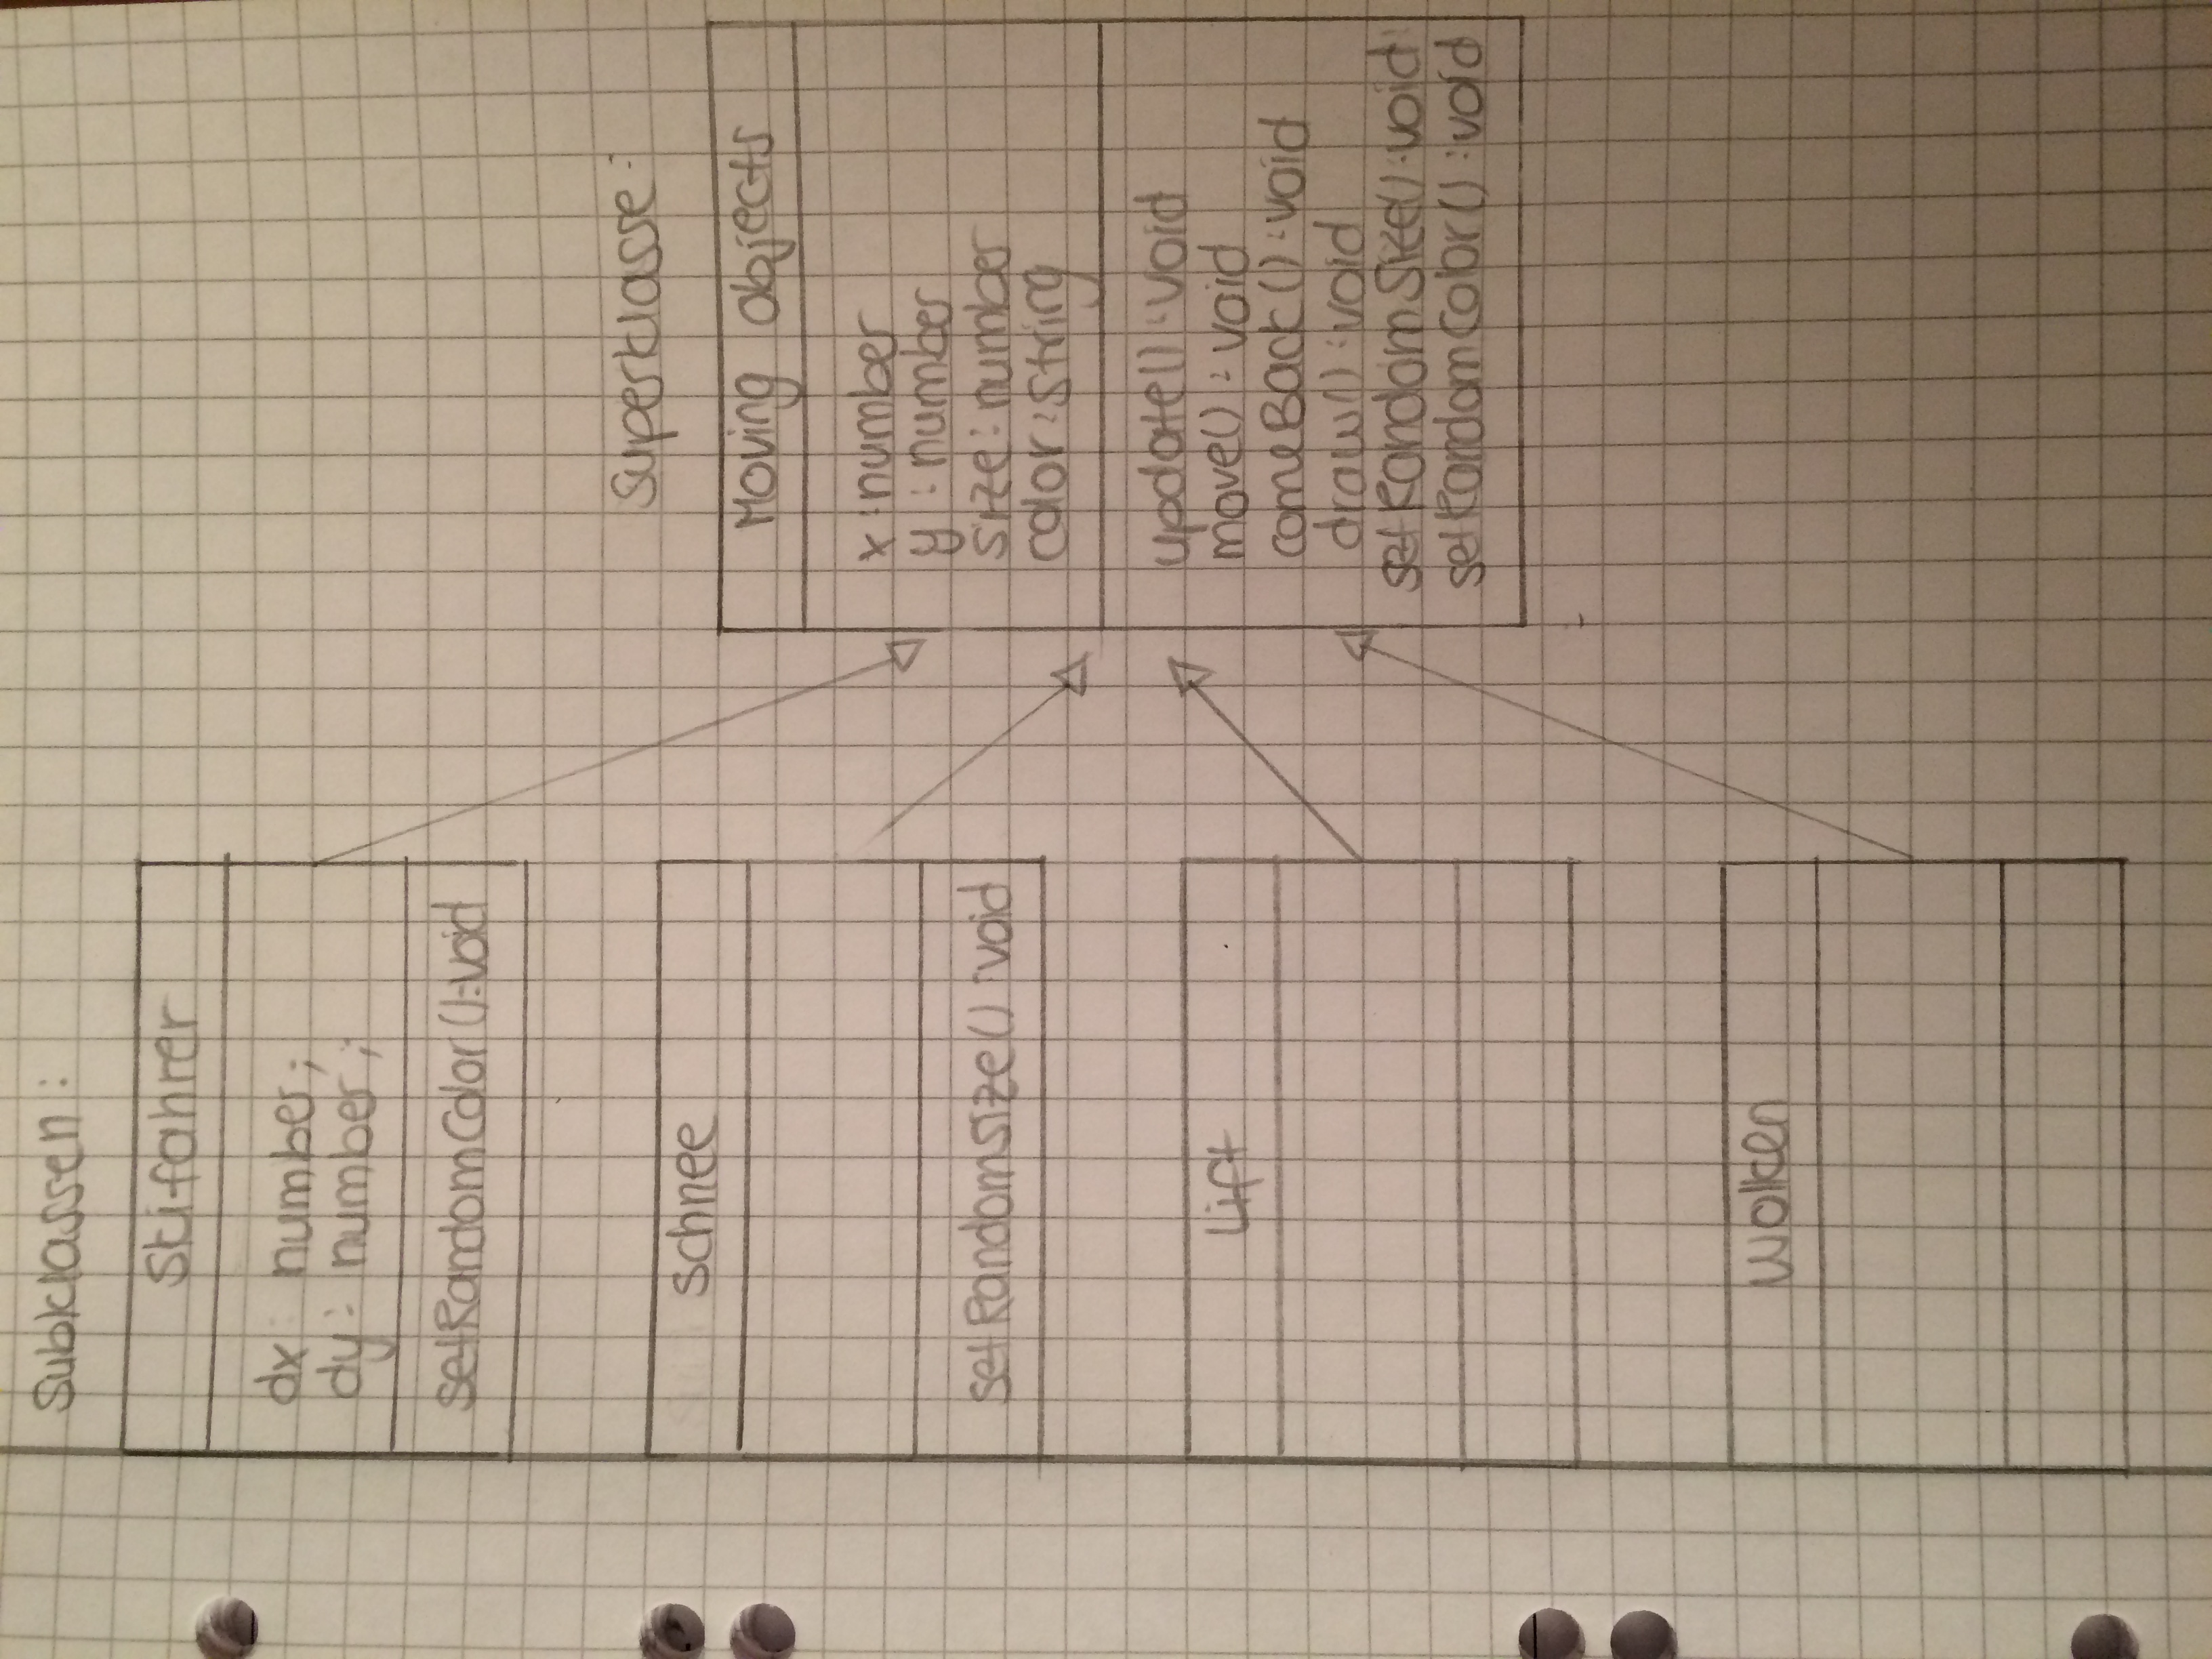 Subklassen:
Skifahrer
dx: number;
dy: number;
setRandomColor():void
Schnee
setRandomSize():void
Lift
Wolken
Superklasse:
Moving Objects
x:number
y:number
size:number
color:string
update():void
move():void
comeBack():void
draw():void
setRandomSize():void
setRandomColor():void